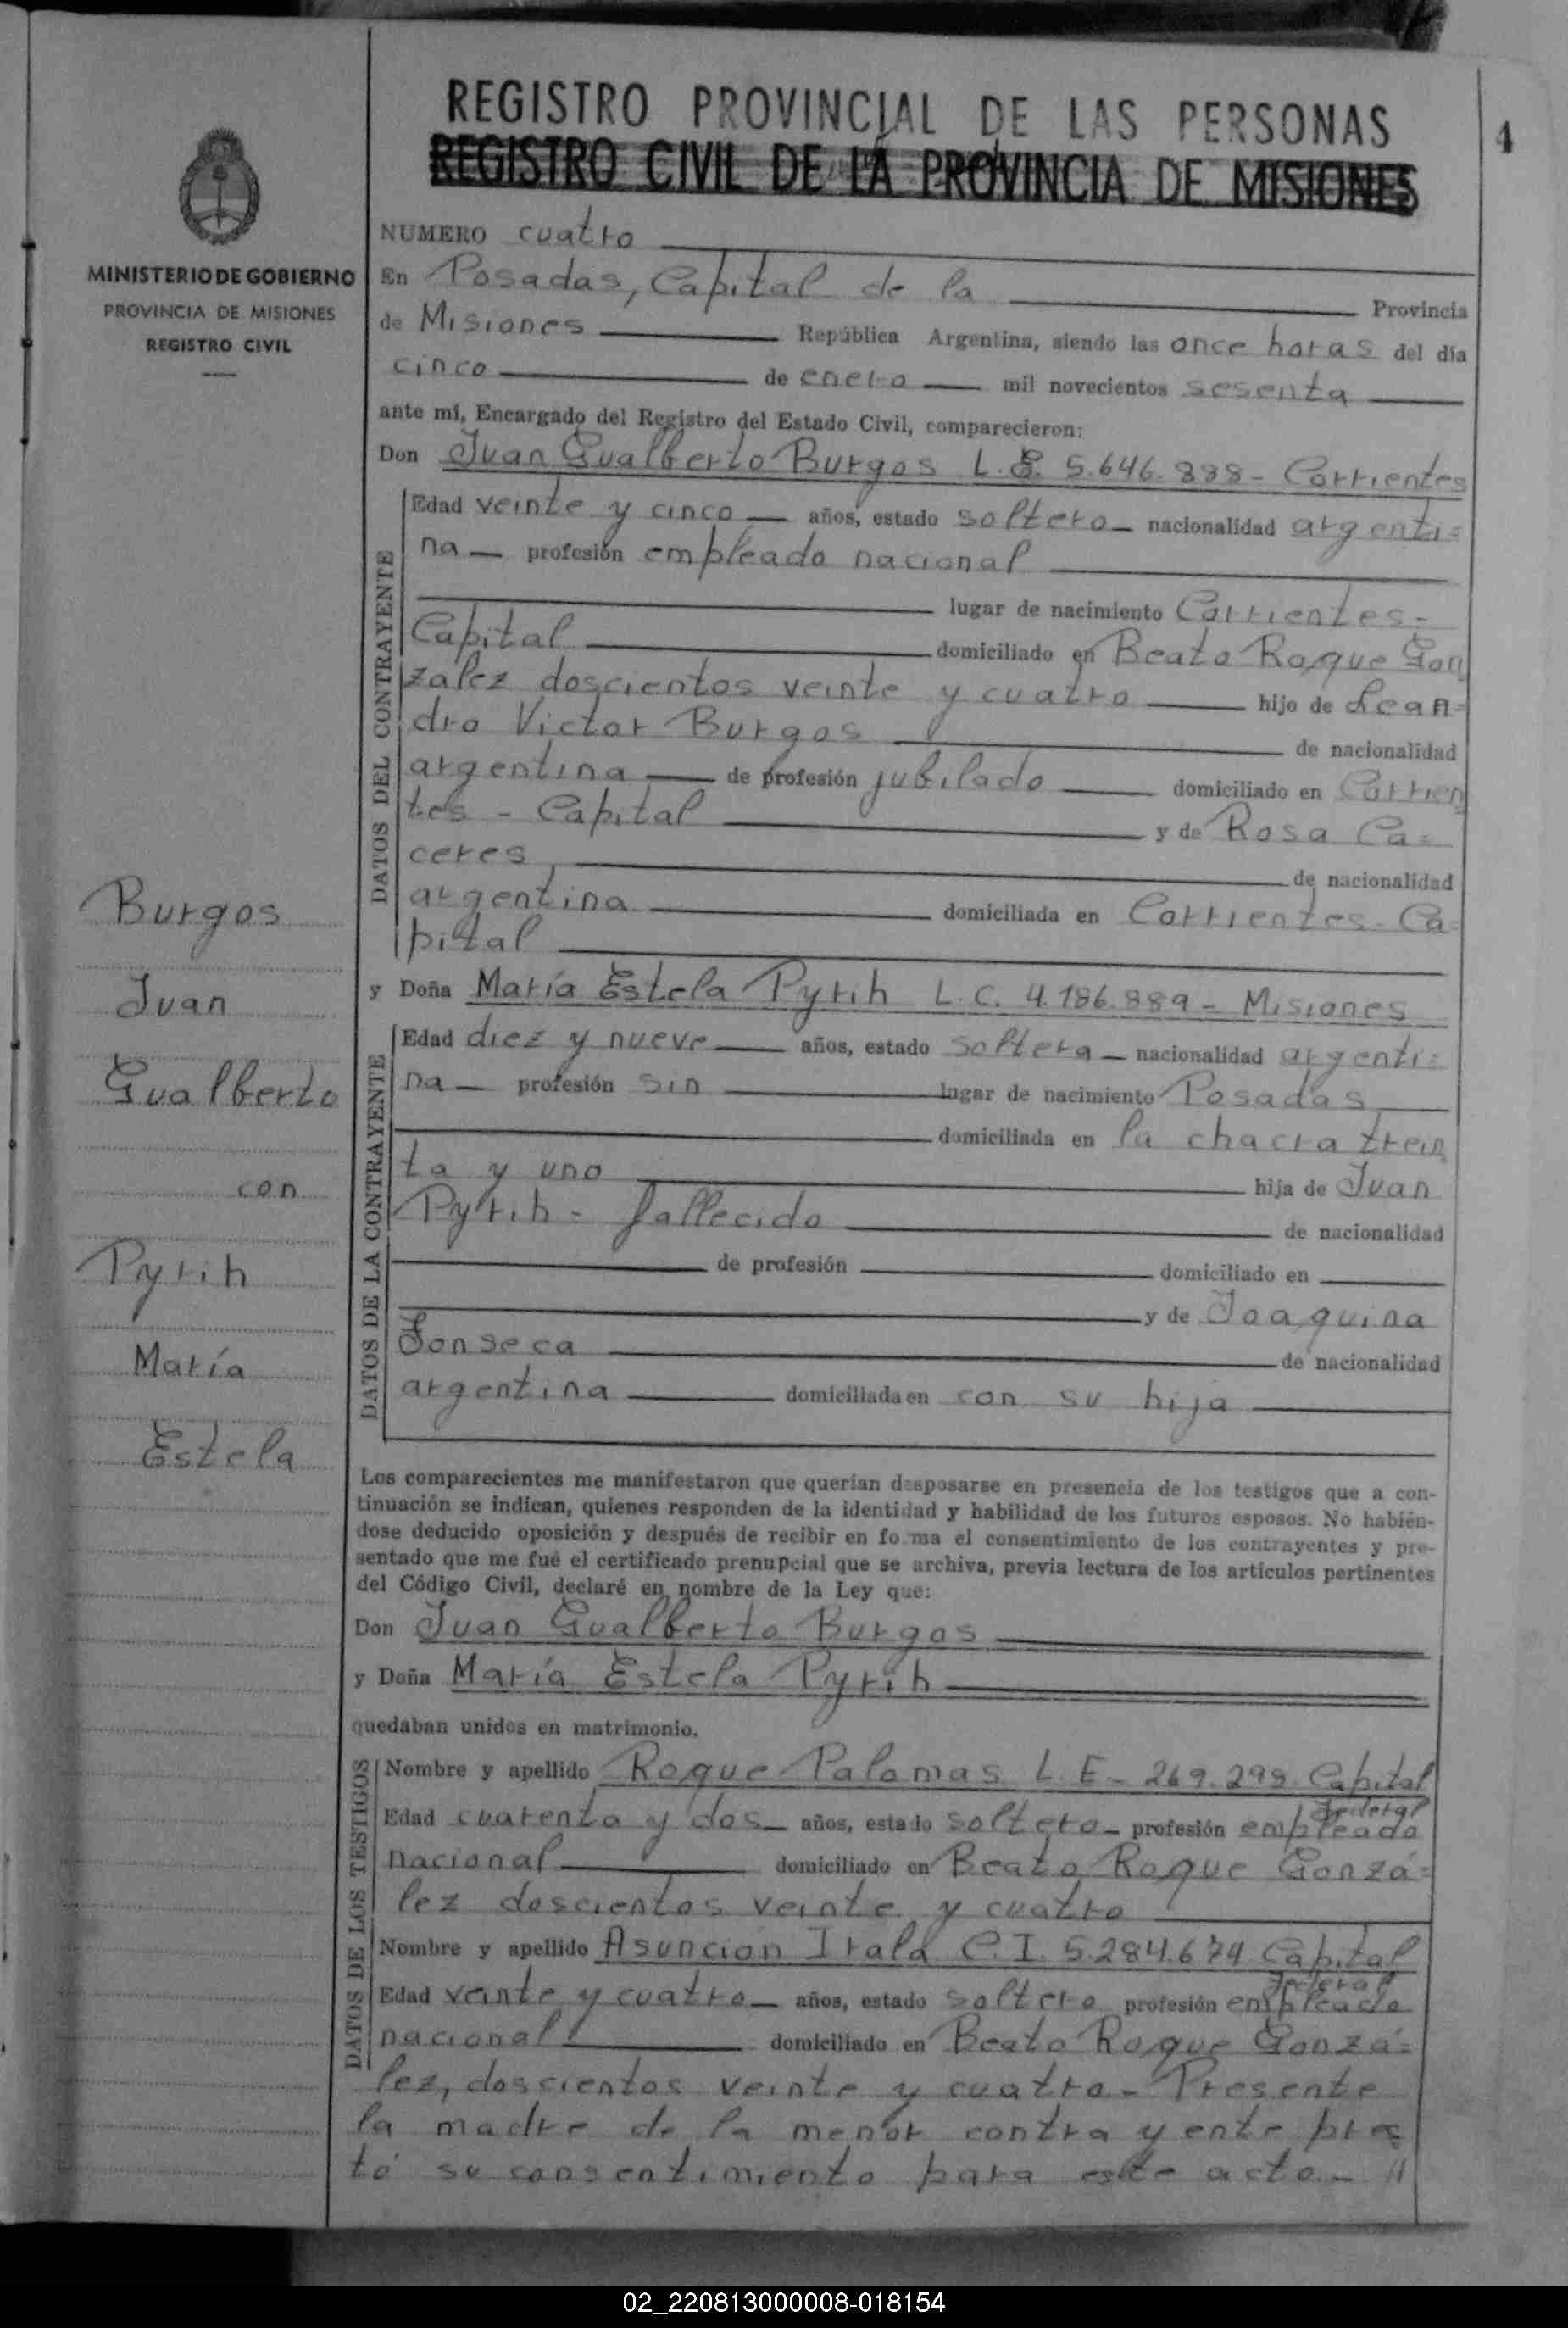 REGISTRO PROVINCIAL DE LAS PERSONAS
REGISTRO CIVIL DE LA PROVINCIA DE MISIONES
4
MINISTERIO DE GOBIERNO
PROVINCIA DE MISIONES
REGISTRO CIVIL
NUMERO cuatro
En Posadas, Capital de la Provincia
de Misiones República Argentina, siendo las once horas del día
cinco de enero mil novecientos sesenta
ante mí, Encargado del Registro del Estado Civil, comparecieron:
Don Juan Gualberto Burgos L.E. 5.646.888 - Corrientes
DATOS DEL CONTRAYENTE
Edad veinte y cinco años, estado soltero nacionalidad argenti=
na profesión empleado nacional
lugar de nacimiento Corrientes-
Capital domiciliado en Beato Roque Gon
zalez doscientos veinte y cuatro hijo de Lean=
dro Victor Burgos de nacionalidad
argentina de profesión jubilado domiciliado en Corrien
tes - Capital y de Rosa Ca=
ceres de nacionalidad
argentina domiciliada en Corrientes-Ca=
pital
y Doña María Estela Pyrih L.C. 4.186.889 - Misiones
DATOS DE LA CONTRAYENTE
Edad diez y nueve años, estado soltera nacionalidad argenti=
na profesión sin lugar de nacimiento Posadas
domiciliada en la chacra trein
ta y uno hija de Juan
Pyrih - fallecido de nacionalidad
de profesión domiciliado en
y de Joaquina
Fonseca de nacionalidad
argentina domiciliada en con su hija
Burgos
Juan
Gualberto
con
Pyrih
María
Estela
Los comparecientes me manifestaron que querían desposarse en presencia de los testigos que a con-
tinuación se indican, quienes responden de la identidad y habilidad de los futuros esposos. No habién-
dose deducido oposición y después de recibir en fo ma el consentimiento de los contrayentes y pre-
sentado que me fué el certificado prenupcial que se archiva, previa lectura de los artículos pertinentes
del Código Civil, declaré en nombre de la Ley que:
Don Juan Gualberto Burgos
y Doña María Estela Pyrih
quedaban unidos en matrimonio.
DATOS DE LOS TESTIGOS
Nombre y apellido Roque Palomas L.E - 269.298. Capital
Federal
Edad cuarenta y dos años, estado soltero profesión empleado
nacional domiciliado en Beato Roque Gonzá=
lez doscientos veinte y cuatro
Nombre y apellido Asuncion Irala C.I. 5.284.674 Capital
Federal
Edad veinte y cuatro años, estado soltero profesión empleado
nacional domiciliado en Beato Roque Gonzá=
lez, doscientos veinte y cuatro - Presente
la madre de la menor contrayente pres
tó su consentimiento para este acto - //
02_220813000008-018154